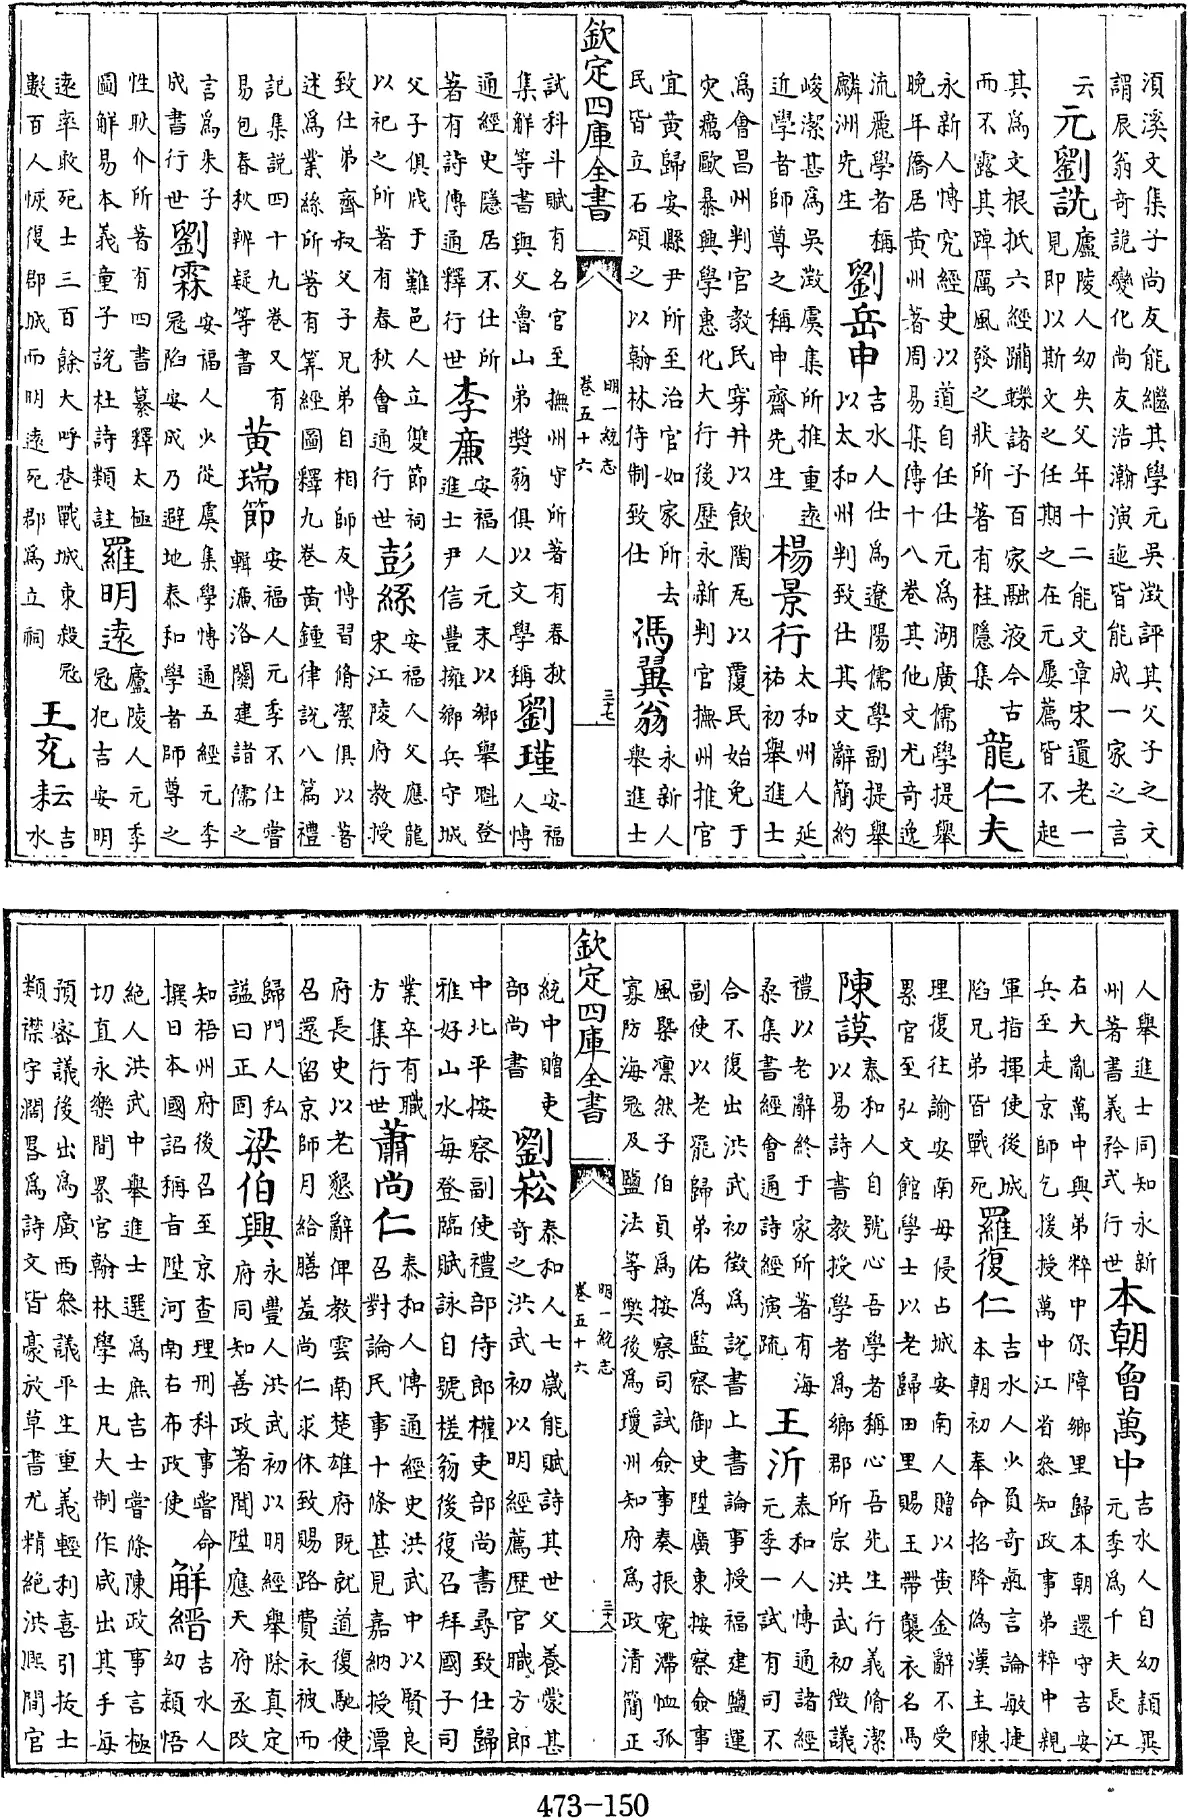 湏溪文集子尚友能繼其學元吳澂評其父子之文
謂辰翁奇詭變化尚友浩瀚演迤皆能成一家之言
云元劉詵廬陵人幼失父年十二能文章宋遺老一
見即以斯文之任期之在元屢薦皆不起
其為文根柢六經躪轢諸子百家融液今古
而不露其踔厲風發之狀所著有桂隱集龍仁夫
永新人博究經史以道自任仕元為湖廣儒學提舉
晚年僑居黄州著周易集傳十八卷其他文尤奇逸
流麗學者稱
麟洲先生劉岳申吉水人仕為遼陽儒學副提舉
以太和州判致仕其文辭簡約
峻潔甚為吳澂虞集所推重逺
近學者師尊之稱申齋先生楊景行太和州人延
祐初舉進士
為會昌州判官教民穿井以飲陶瓦以覆民始免于
灾癘歐暴興學惠化大行後歷永新判官撫州推官
宜黄歸安縣尹所至治官如家所去
民皆立石頌之以翰林侍制致仕馮翼翁永新人
舉進士
欽定四庫全書
明一統志
卷五十六
三十七
試科斗賦有名官至撫州守所著有春秋
集解等書與父魯山弟奬翁俱以文學稱劉瑾安福
人博
通經史隱居不仕所
著有詩傳通釋行世李㢘安福人元末以鄉舉聮登
進士尹信豐擁鄉兵守城
父子俱戕于難邑人立雙節祠
以祀之所著有春秋會通行世彭絲安福人父應龍
宋江陵府教授
致仕弟齊叔父子兄弟自相師友博習脩潔俱以著
述為業絲所著有筭經圖釋九卷黄鍾律說八篇禮
記集説四十九卷又有
易包春秋辨疑等書黄瑞節安福人元季不仕嘗
輯濂洛關建諸儒之
言為朱子
成書行世劉霖安福人少從虞集學博通五經元季
冦陷安成乃避地泰和學者師尊之
性耿介所著有四書纂釋太極
圖解易本義童子說杜詩類註羅明逺廬陵人元季
冦犯吉安明
逺率敢死士三百餘大呼巷戰城東殺冦
數百人恢復郡城而明逺死郡為立祠王充耘吉
水
人舉進士同知永新
州著書義矜式行世本朝曾萬中吉水人自幼頴異
元季為千夫長江
右大亂萬中與弟粹中保障鄉里歸本朝還守吉安
兵至走京師乞援授萬中江省叅知政事弟粹中親
軍指揮使後城
陷兄弟皆戰死羅復仁吉水人少負奇氣言論敏捷
本朝初奉命招降偽漢主陳
理復往諭安南毋侵占城安南人贈以黄金辭不受
累官至弘文館學士以老歸田里賜玉帶襲衣名馬
陳謨泰和人自號心吾學者稱心吾先生行義脩潔
以易詩書教授學者為鄉郡所宗洪武初徴議
禮以老辭終于家所著有海
桒集書經會通詩經演疏王沂泰和人博通諸經
元季一試有司不
合不復出洪武初徴為説書上書論事授福建鹽運
副使以老罷歸弟佑為監察御史陞廣東按察僉事
風槩凛然子伯貞為按察司試僉事奏振寃滯恤孤
寡防海冦及鹽法等獘後為瓊州知府為政清簡正
欽定四庫全書
明一統志
卷五十六
三十八
統中贈吏
部尚書劉崧泰和人七歲能賦詩其世父養蒙甚
奇之洪武初以明經薦歴官職方郎
中北平按察副使禮部侍郎權吏部尚書尋致仕歸
雅好山水每登臨賦詠自號槎翁後復召拜國子司
業卒有職
方集行世蕭尚仁泰和人博通經史洪武中以賢良
召對論民事十條甚見嘉納授潭
府長史以老懇辭俾教雲南楚雄府既就道復馳使
召還留京師月給膳羞尚仁求休致賜路費衣被而
歸門人私
謚曰正固梁伯興永豐人洪武初以明經舉除真定
府同知善政著聞陞應天府丞改
知梧州府後召至京查理刑科事嘗命
撰日本國詔稱旨陞河南右布政使解縉吉水人
幼頴悟
絶人洪武中舉進士選為庶吉士嘗條陳政事言極
切直永樂間累官翰林學士凡大制作咸出其手每
預密議後出為廣西叅議平生重義輕利喜引拔士
類襟宇濶畧為詩文皆豪放草書尤精絶洪熙間官
473-150